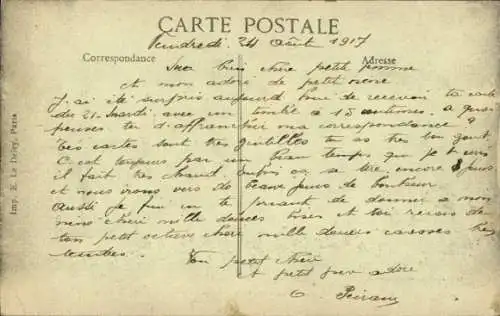 CARTE POSTALE
Vendredi 24 août 1917
Correspondance Adresse
bien chère petit
et mon adoré de petit
J'ai été surpris aujourd hui de recevoir ta carte
du 21. mardi avec un timbre à 15 centimes a quoi
penses tu d'affranchir ma correspondance ?
Tes cartes sont très gentilles tu as très bon gout.
C'est toujours par un beau temps que je t'ecris
il fait très chaud. Enfin ca se tire encore 8 jours
et nous irons vers de beaux jours de bonheur.
Aussi je fini en te priant de donner a mon
cheri mille douces bises et toi recois de
ton petit chere mille douces caresses très
tendres.
Ton petit cheri
et petit adoré
Imp. E. Le Deley, Paris